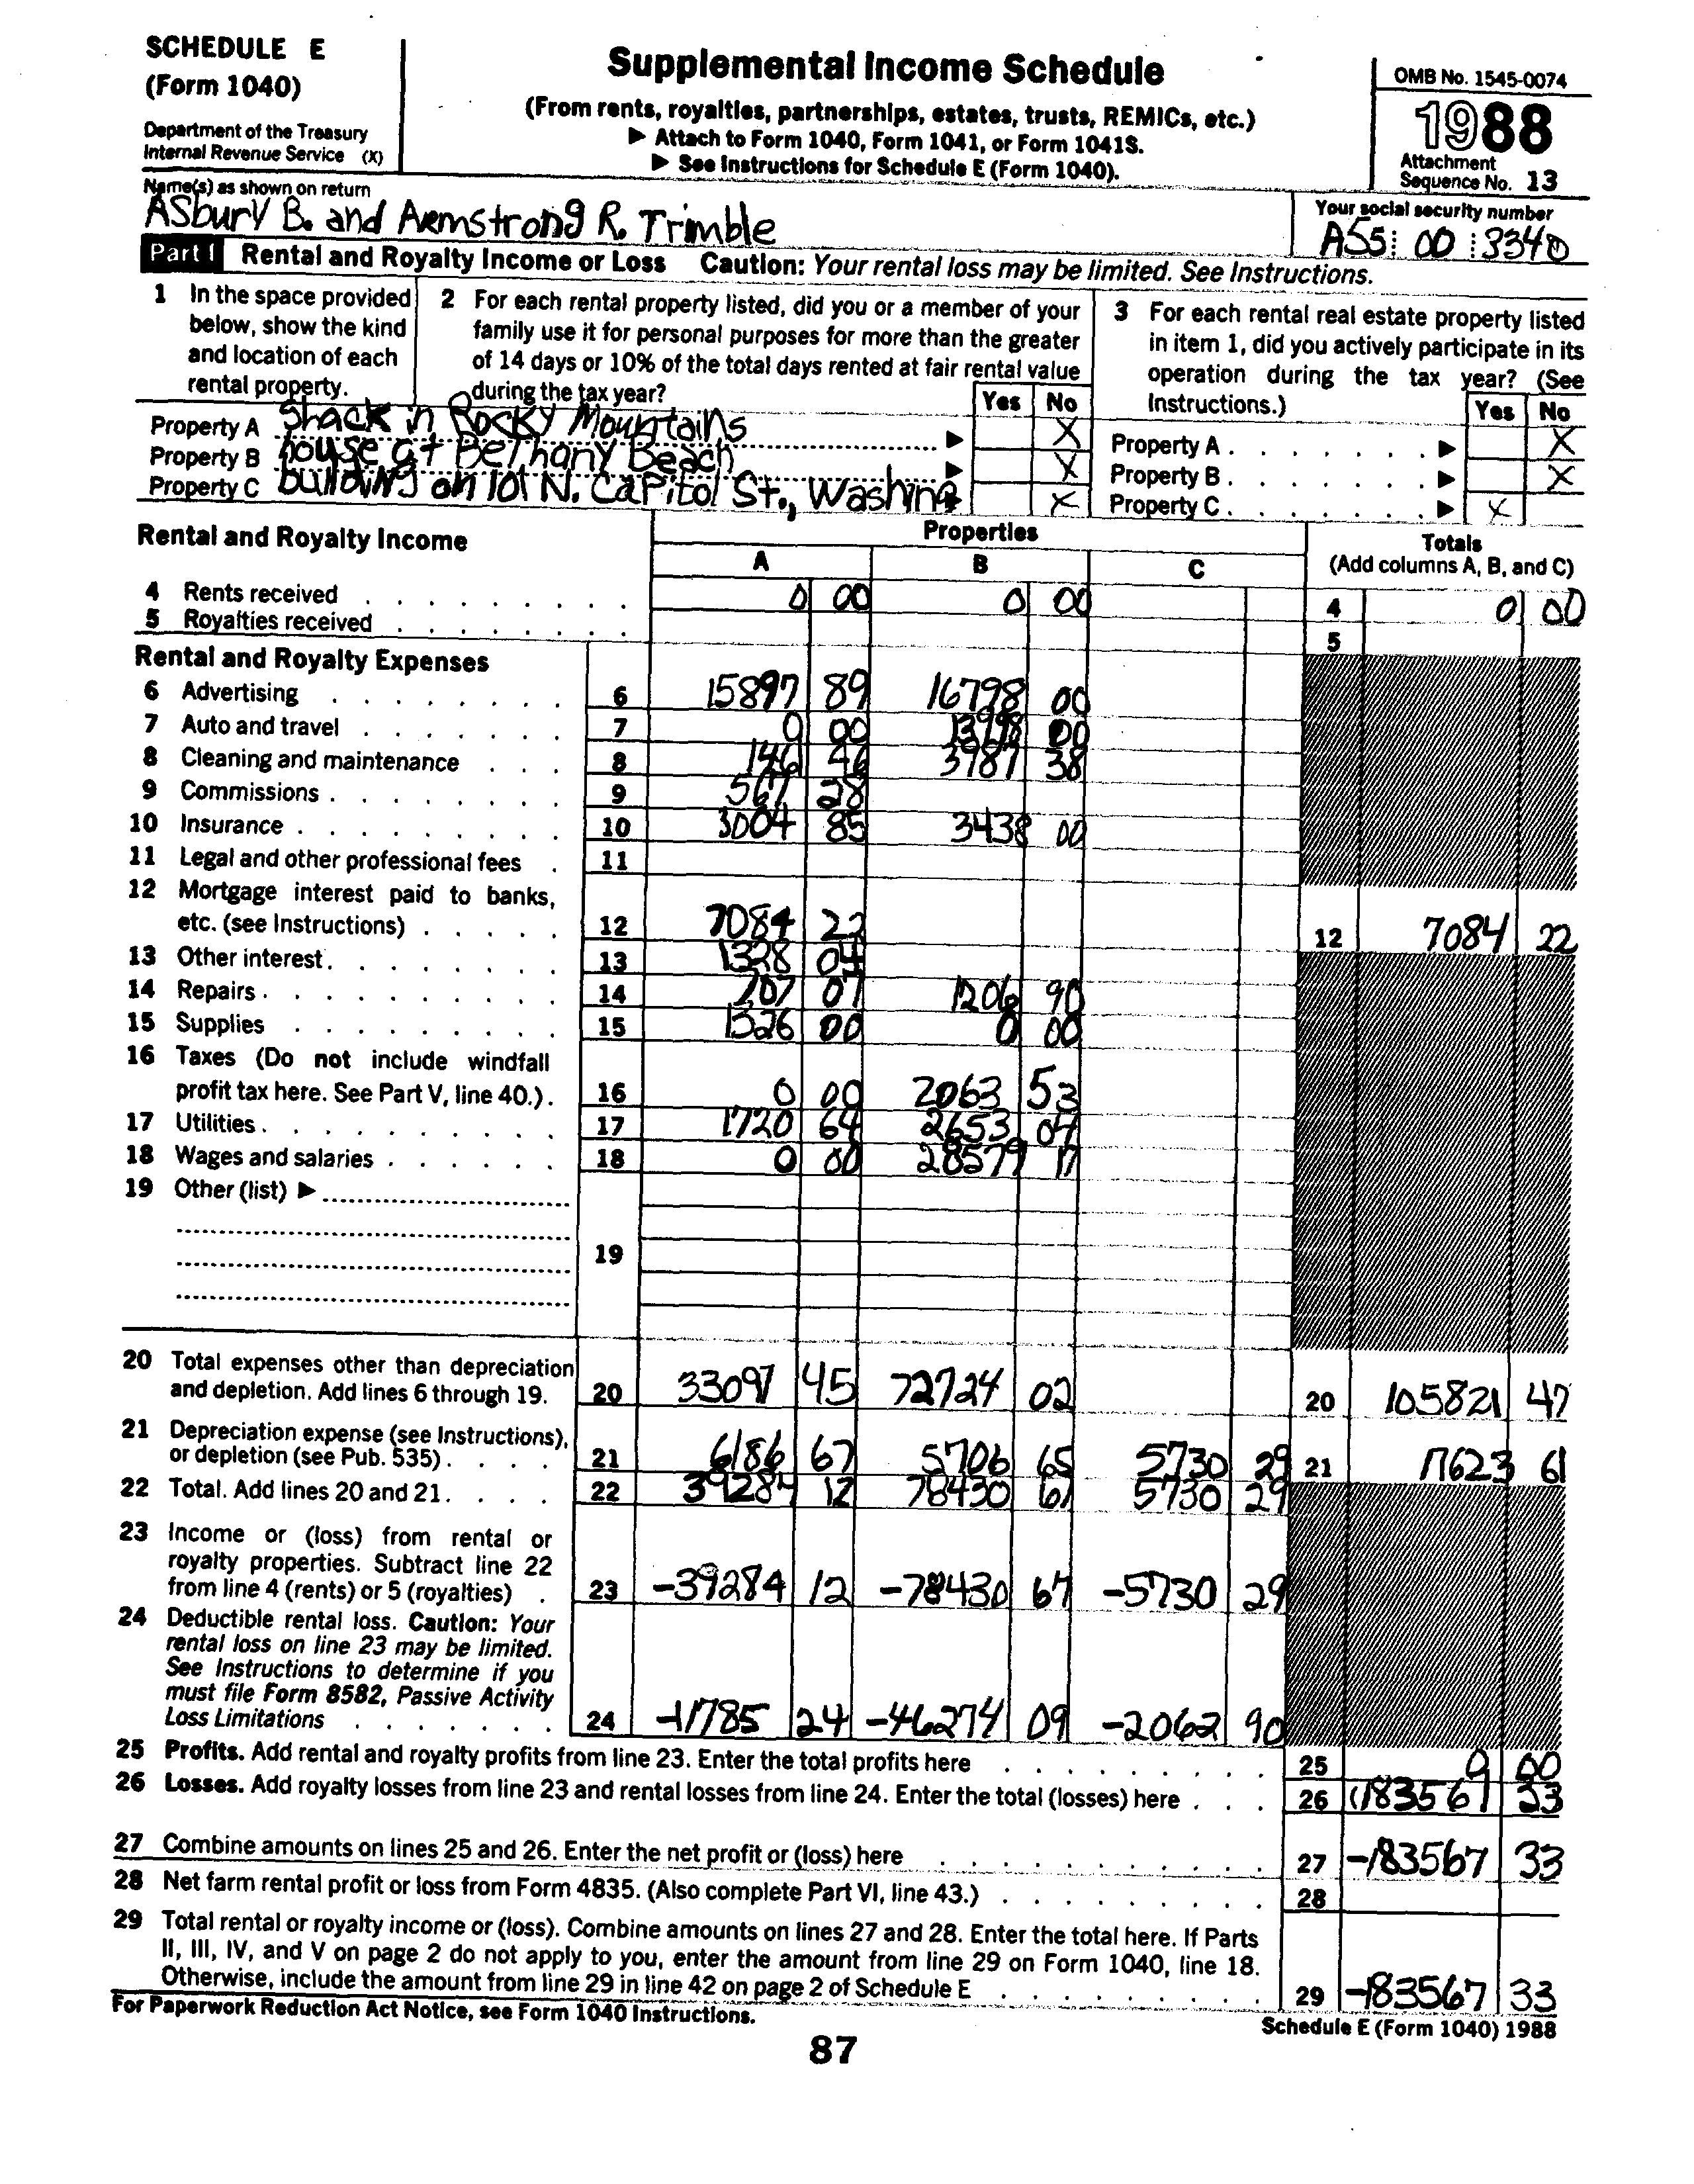 SCHEDULE E
(Form 1040)
Department of the Treasury
Internal Revenue Service (X)
Supplemental Income Schedule
(From rents, royalties, partnerships, estates, trusts, REMICs, etc.)
▶ Attach to Form 1040, Form 1041, or Form 1041S.
▶ See Instructions for Schedule E (Form 1040).
OMB No. 1545-0074
1988
Attachment
Sequence No. 13
Name(s) as shown on return
Asbury B. and Armstrong R. Trimble
Your social security number
A55 00 3340
Part I Rental and Royalty Income or Loss Caution: Your rental loss may be limited. See Instructions.
1 In the space provided
below, show the kind
and location of each
rental property.
2 For each rental property listed, did you or a member of your
family use it for personal purposes for more than the greater
of 14 days or 10% of the total days rented at fair rental value
during the tax year?
Yes No
3 For each rental real estate property listed
in item 1, did you actively participate in its
operation during the tax year? (See
Instructions.)
Yes No
Property A Shack in Rocky Mountains ▶ X
Property B house at Bethany Beach ▶ X
Property C building on 101 N. Capitol St., Washing X
Property A ▶ X
Property B ▶ X
Property C ▶ X
Rental and Royalty Income
Properties
A B C
Totals
(Add columns A, B, and C)
4 Rents received 0 00 0 00 4 0 00
5 Royalties received 5
Rental and Royalty Expenses
6 Advertising 6 15897 89 16798 00
7 Auto and travel 7 0 00 13998 00
8 Cleaning and maintenance 8 146 46 3987 38
9 Commissions 9 567 28
10 Insurance 10 3004 85 3438 00
11 Legal and other professional fees 11
12 Mortgage interest paid to banks,
etc. (see Instructions) 12 7084 22 12 7084 22
13 Other interest 13 1328 04
14 Repairs 14 07 1206 90
15 Supplies 15 1326 00 0 00
16 Taxes (Do not include windfall
profit tax here. See Part V, line 40.) 16 0 00 2063 53
17 Utilities 17 1720 64 2653 04
18 Wages and salaries 18 0 00 28579 17
19 Other (list) ▶
19
20 Total expenses other than depreciation
and depletion. Add lines 6 through 19. 20 33097 45 72724 02 20 105821 47
21 Depreciation expense (see Instructions),
or depletion (see Pub. 535) 21 6186 67 5706 65 5730 29 21 17623 61
22 Total. Add lines 20 and 21 22 39284 12 78430 67 5730 29
23 Income or (loss) from rental or
royalty properties. Subtract line 22
from line 4 (rents) or 5 (royalties) 23 -39284 12 -78430 67 -5730 29
24 Deductible rental loss. Caution: Your
rental loss on line 23 may be limited.
See Instructions to determine if you
must file Form 8582, Passive Activity
Loss Limitations 24 -11785 24 -46274 09 -2062 90
25 Profits. Add rental and royalty profits from line 23. Enter the total profits here 25 0 00
26 Losses. Add royalty losses from line 23 and rental losses from line 24. Enter the total (losses) here 26 (183567 33
27 Combine amounts on lines 25 and 26. Enter the net profit or (loss) here 27 -183567 33
28 Net farm rental profit or loss from Form 4835. (Also complete Part VI, line 43.) 28
29 Total rental or royalty income or (loss). Combine amounts on lines 27 and 28. Enter the total here. If Parts
II, III, IV, and V on page 2 do not apply to you, enter the amount from line 29 on Form 1040, line 18.
Otherwise, include the amount from line 29 in line 42 on page 2 of Schedule E 29 -183567 33
For Paperwork Reduction Act Notice, see Form 1040 Instructions.
Schedule E (Form 1040) 1988
87